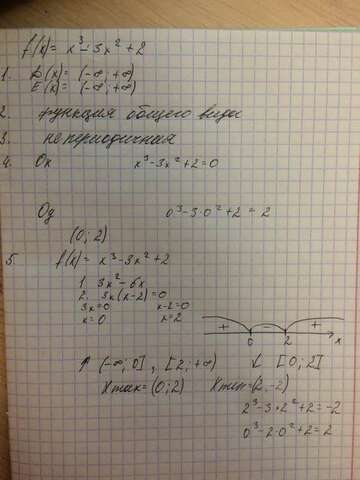 f(x) = x³-3x²+2
1. D(x) = (-∞; +∞)
E(x) = (-∞; +∞)
2. функция общего виды
3. непериодичная
4. Ох x³-3x²+2=0
Оу 0³-3·0²+2 = 2
(0; 2)
5 f(x) = x³-3x²+2
1. 3x²-6x
2. 3x(x-2)=0
3x=0 x-2=0
x=0 x=2
+ - +
0 2 x
↑ (-∞;0] , [2;+∞) ↓ [0;2]
Xmax=(0;2) Xmin=(2,-2)
2³-3·2²+2=-2
0³-2·0²+2=2